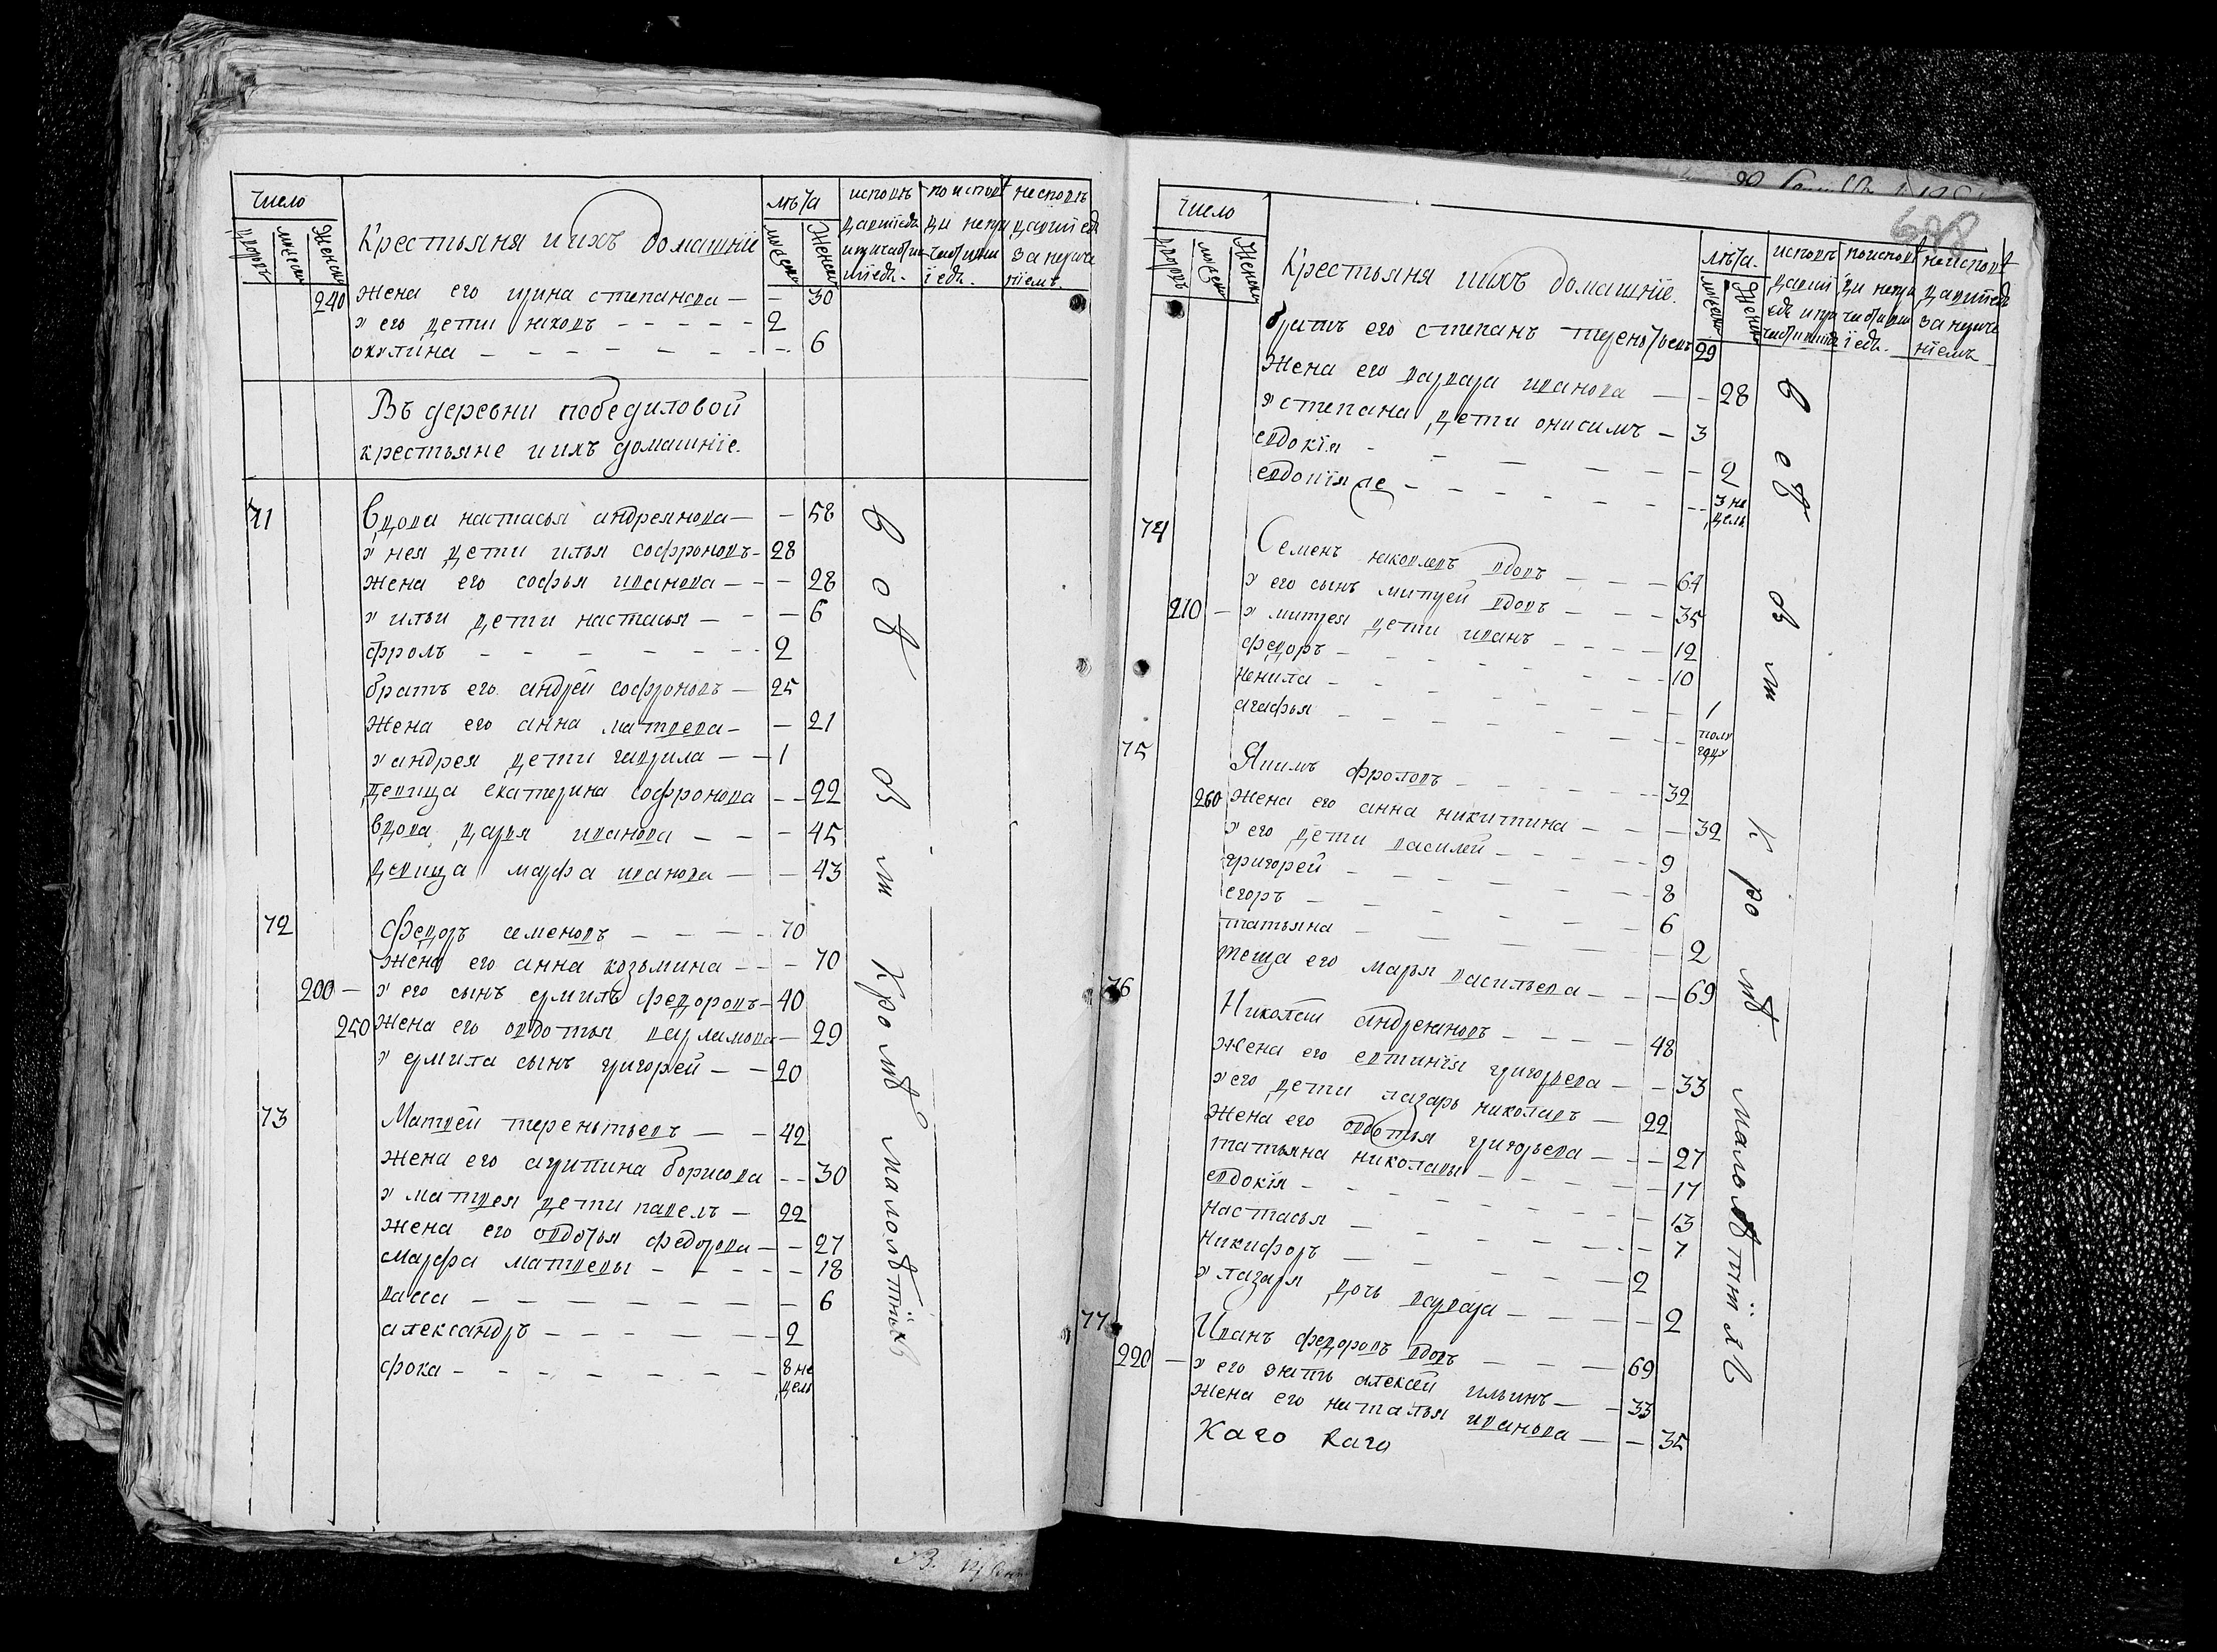 Число
дворовъ
мужеска
Женска
Крестьяня иихъ домашніе
лѣта
мужеска
Женска
240 Жена его ирина степанова — — 30
у его дети яковъ — — — — 2
окулина — — — — — — 6
Въ деревни победиловой
крестьяне иихъ домашніе.
71 Вдова настасья андреянова — — 58
у нея дети илья софроновъ — 28
жена его софья иванова — — — 28
у ильи дети настасья — — — 6
фролъ — — — — — — 2
братъ его андрей софроновъ — 25
Жена его анна матвеева — — 21
у андрея дети гаврила — — 1
девица екатерина софронова — — 22
вдова дарья иванова — — — 45
девица марфа иванова — — — 43
72 Федоръ семеновъ — — — — 70
Жена его анна козьмина — — — 70
200 — у его сынъ ермилъ федоровъ — 40
250 Жена его овдотья варламова — 29
у ермила сынъ григорей — — 20
73 Матвей терентьевъ — — 42
Жена его агрипина борисова — — 30
у матвея дети павелъ — 22
Жена его овдотья федорова — — 27
марфа матвеевы — — — — — 18
васса — — — — — — — 6
александръ — — — — — — 2
фока — — — — — — — 8 не
дель
Всѣ
кромѣ малолѣтнихъ
698
Число
дворовъ
мужеска
Женска
Крестьяня иихъ домашніе.
лѣта.
мужеска
Женска
братъ его степанъ терентьевъ 29
Жена его варвара иванова — — 28
у степана дети онисимъ — 3
евдокія — — — — — — 2
евдокія же — — — — — — 3 не
дель
74 Семенъ яковлевъ вдовъ — — — 64
у его сынъ митрей вдовъ — — — 35
210 — у митрея дети иванъ — — — — 12
федоръ — — — — — — 10
ненила — — — — — — 1
агафья — — — — — — полу
году
75 Якимъ фроловъ — — — — — 32
260 жена его анна никитина — — — 32
у его дети василей — — — — — 9
григорей — — — — — — 8
егоръ — — — — — — 6
татьяна — — — — — — 2
теща его марья васильева — — — 69
76 Николай андреяновъ — — — — 48
жена его евтинія григорьева — — 33
у его дети лазарь николаевъ — 22
жена его овдотья григорьева — — — 27
татьяна николаевы — — — — — 17
евдокія — — — — — — 13
настасья — — — — — — 7
никифоръ — — — — — — 2
у лазаря дочь варвара — — — — 2
77 Иванъ федоровъ вдовъ — — — 69
220 — у его зять алексей ильинъ — — 33
Жена его наталья иванова — — 35
Каго Каго
Всѣ
кромѣ малолѣтнихъ